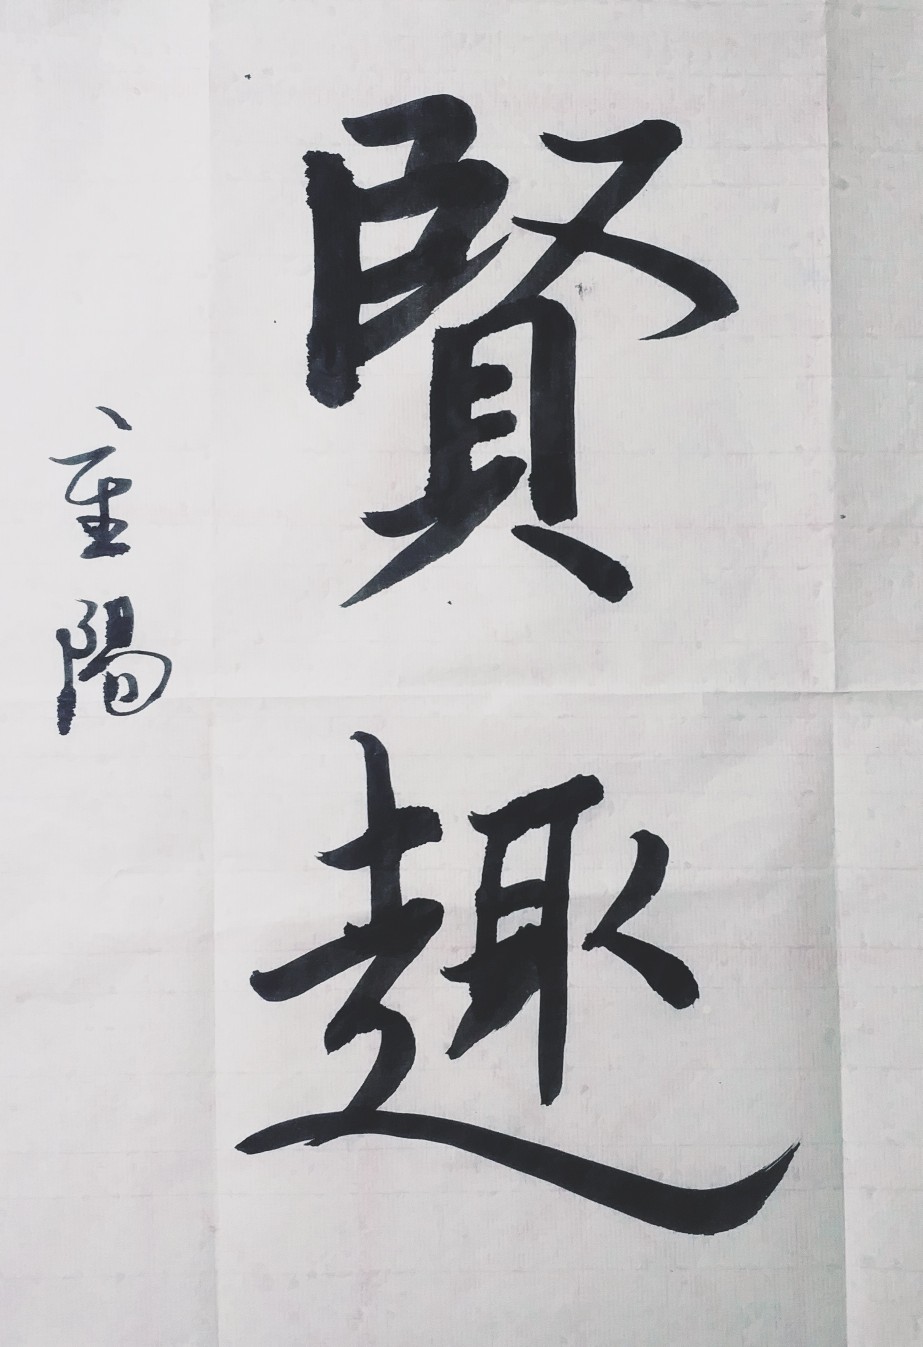 賢趣
重陽